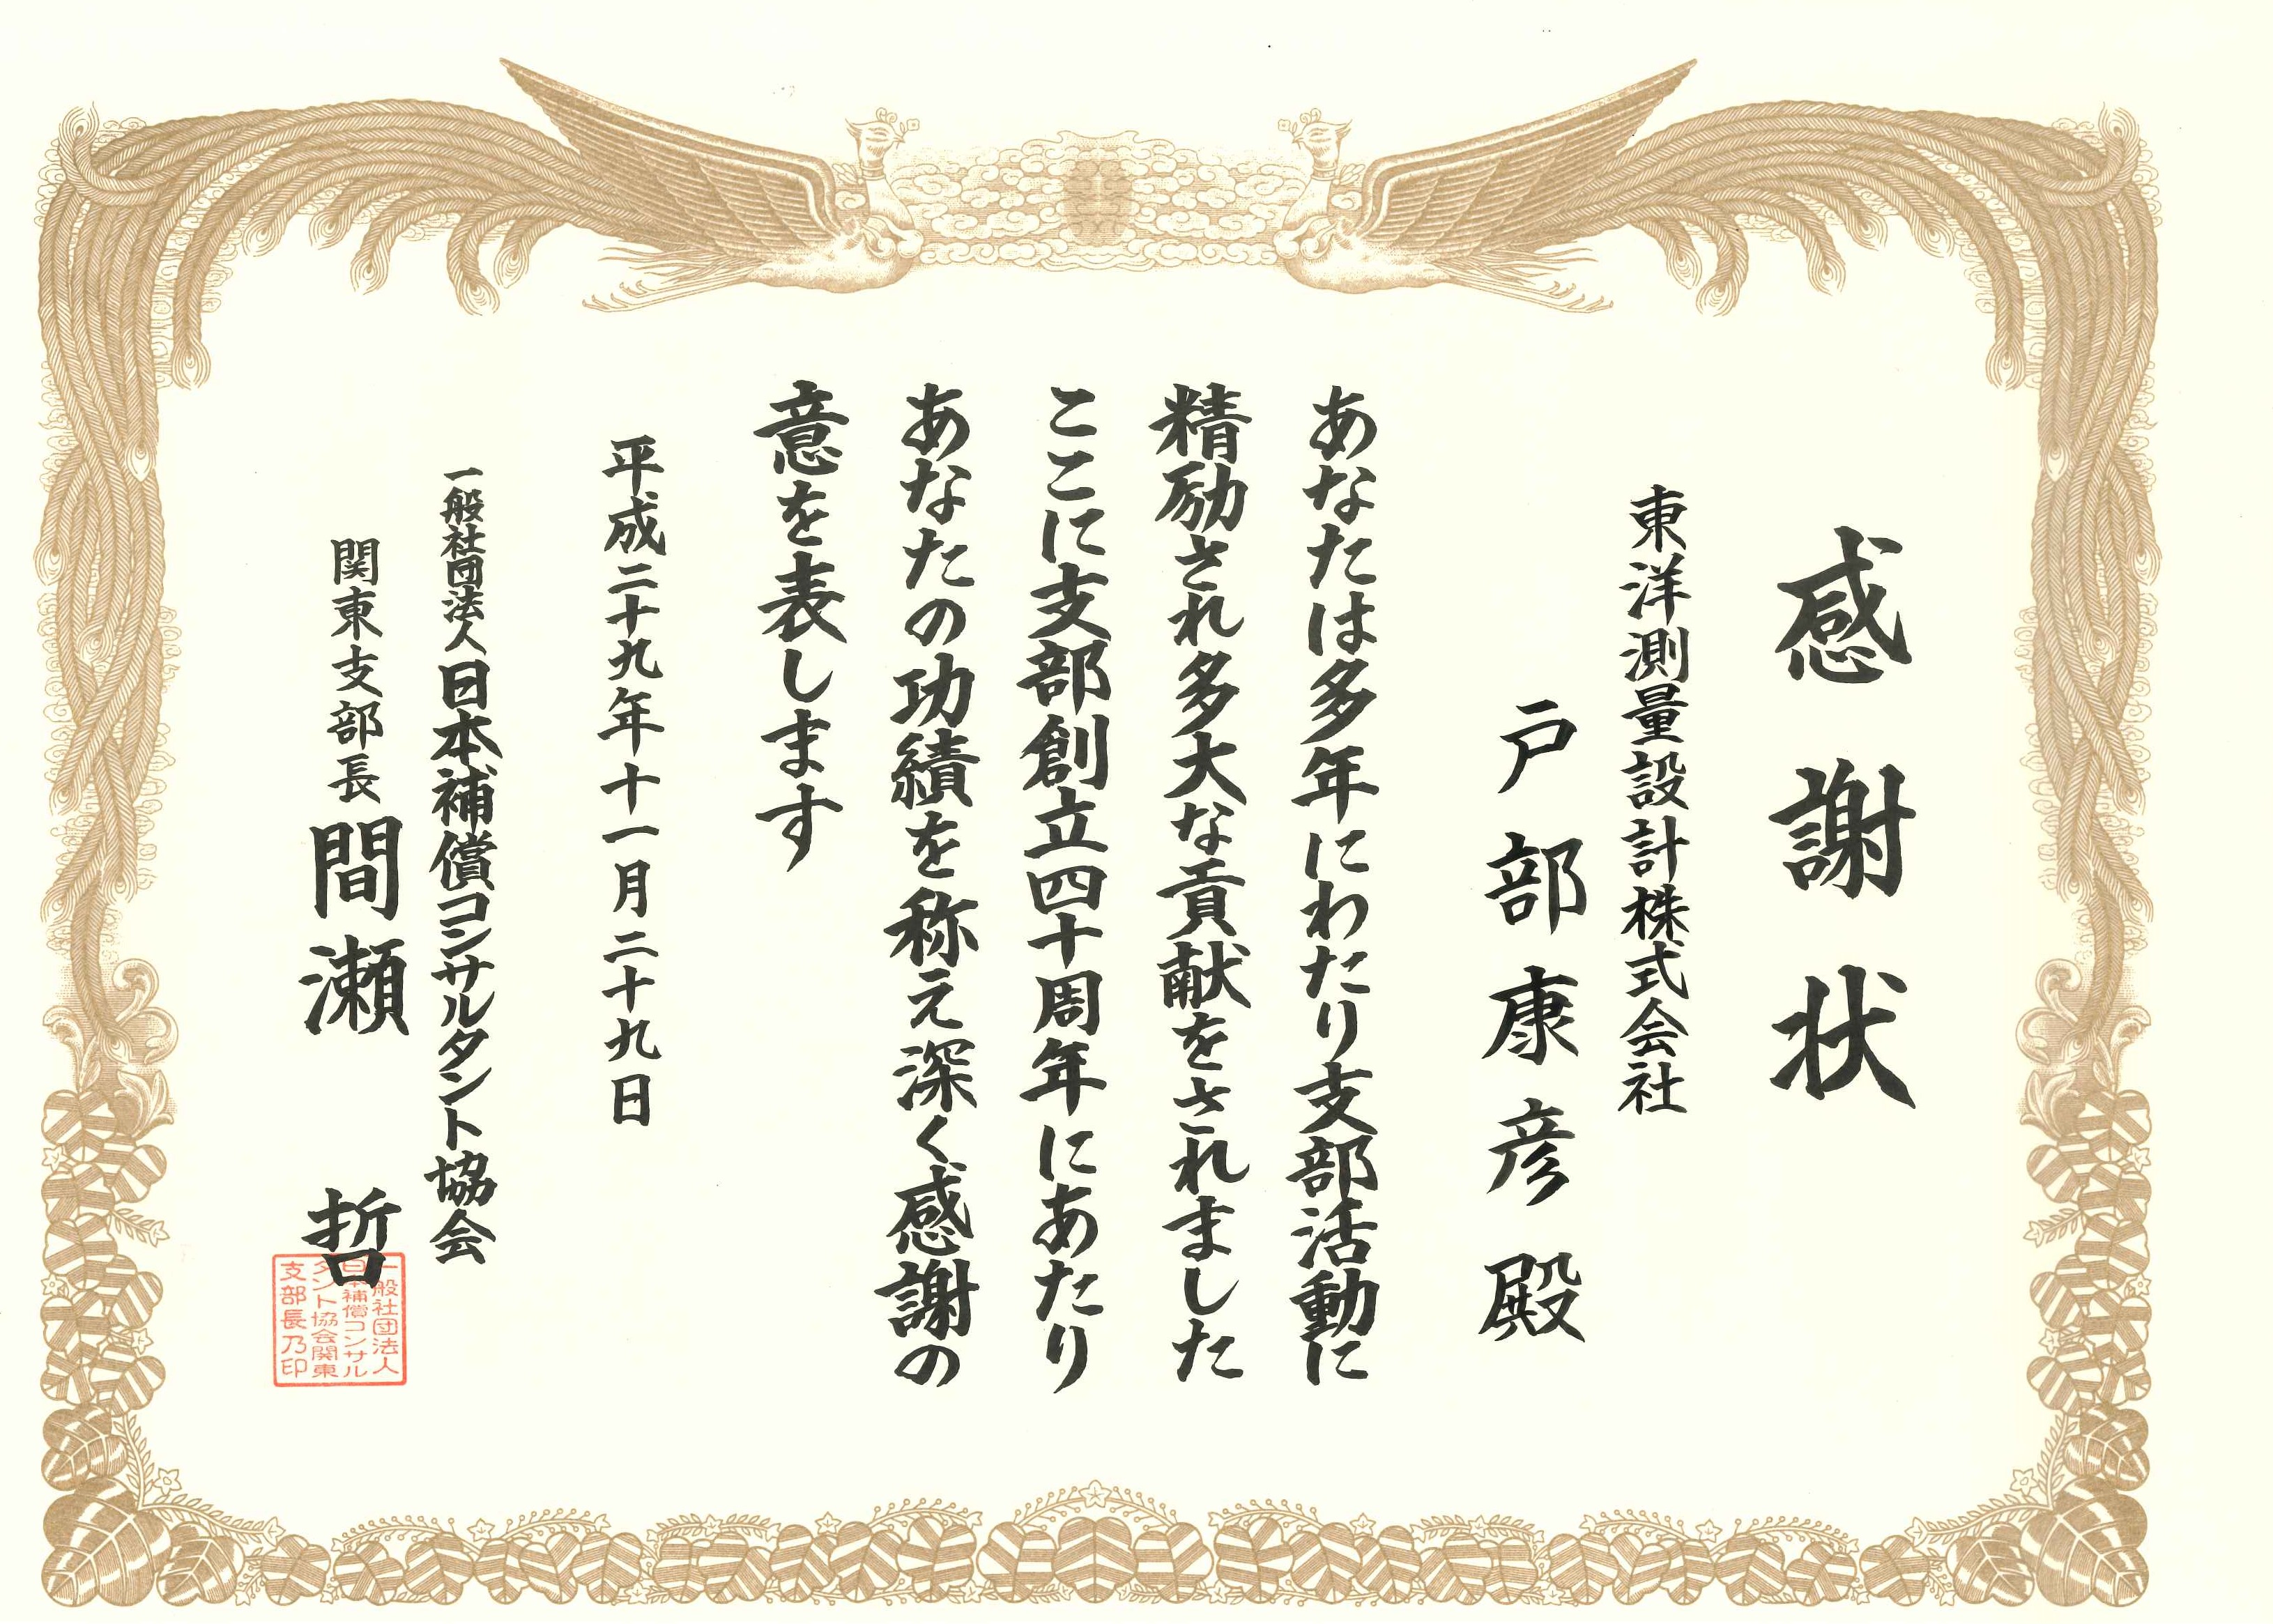 感謝状
東洋測量設計株式会社
戸部康彦殿
あなたは多年にわたり支部活動に
精励され多大な貢献をされました
ここに支部創立四十周年にあたり
あなたの功績を称え深く感謝の
意を表します
平成二十九年十一月二十九日
一般社団法人日本補償コンサルタント協会
関東支部長間瀬哲
一般社団法人
日本補償コンサル
タント協会関東
支部長乃印